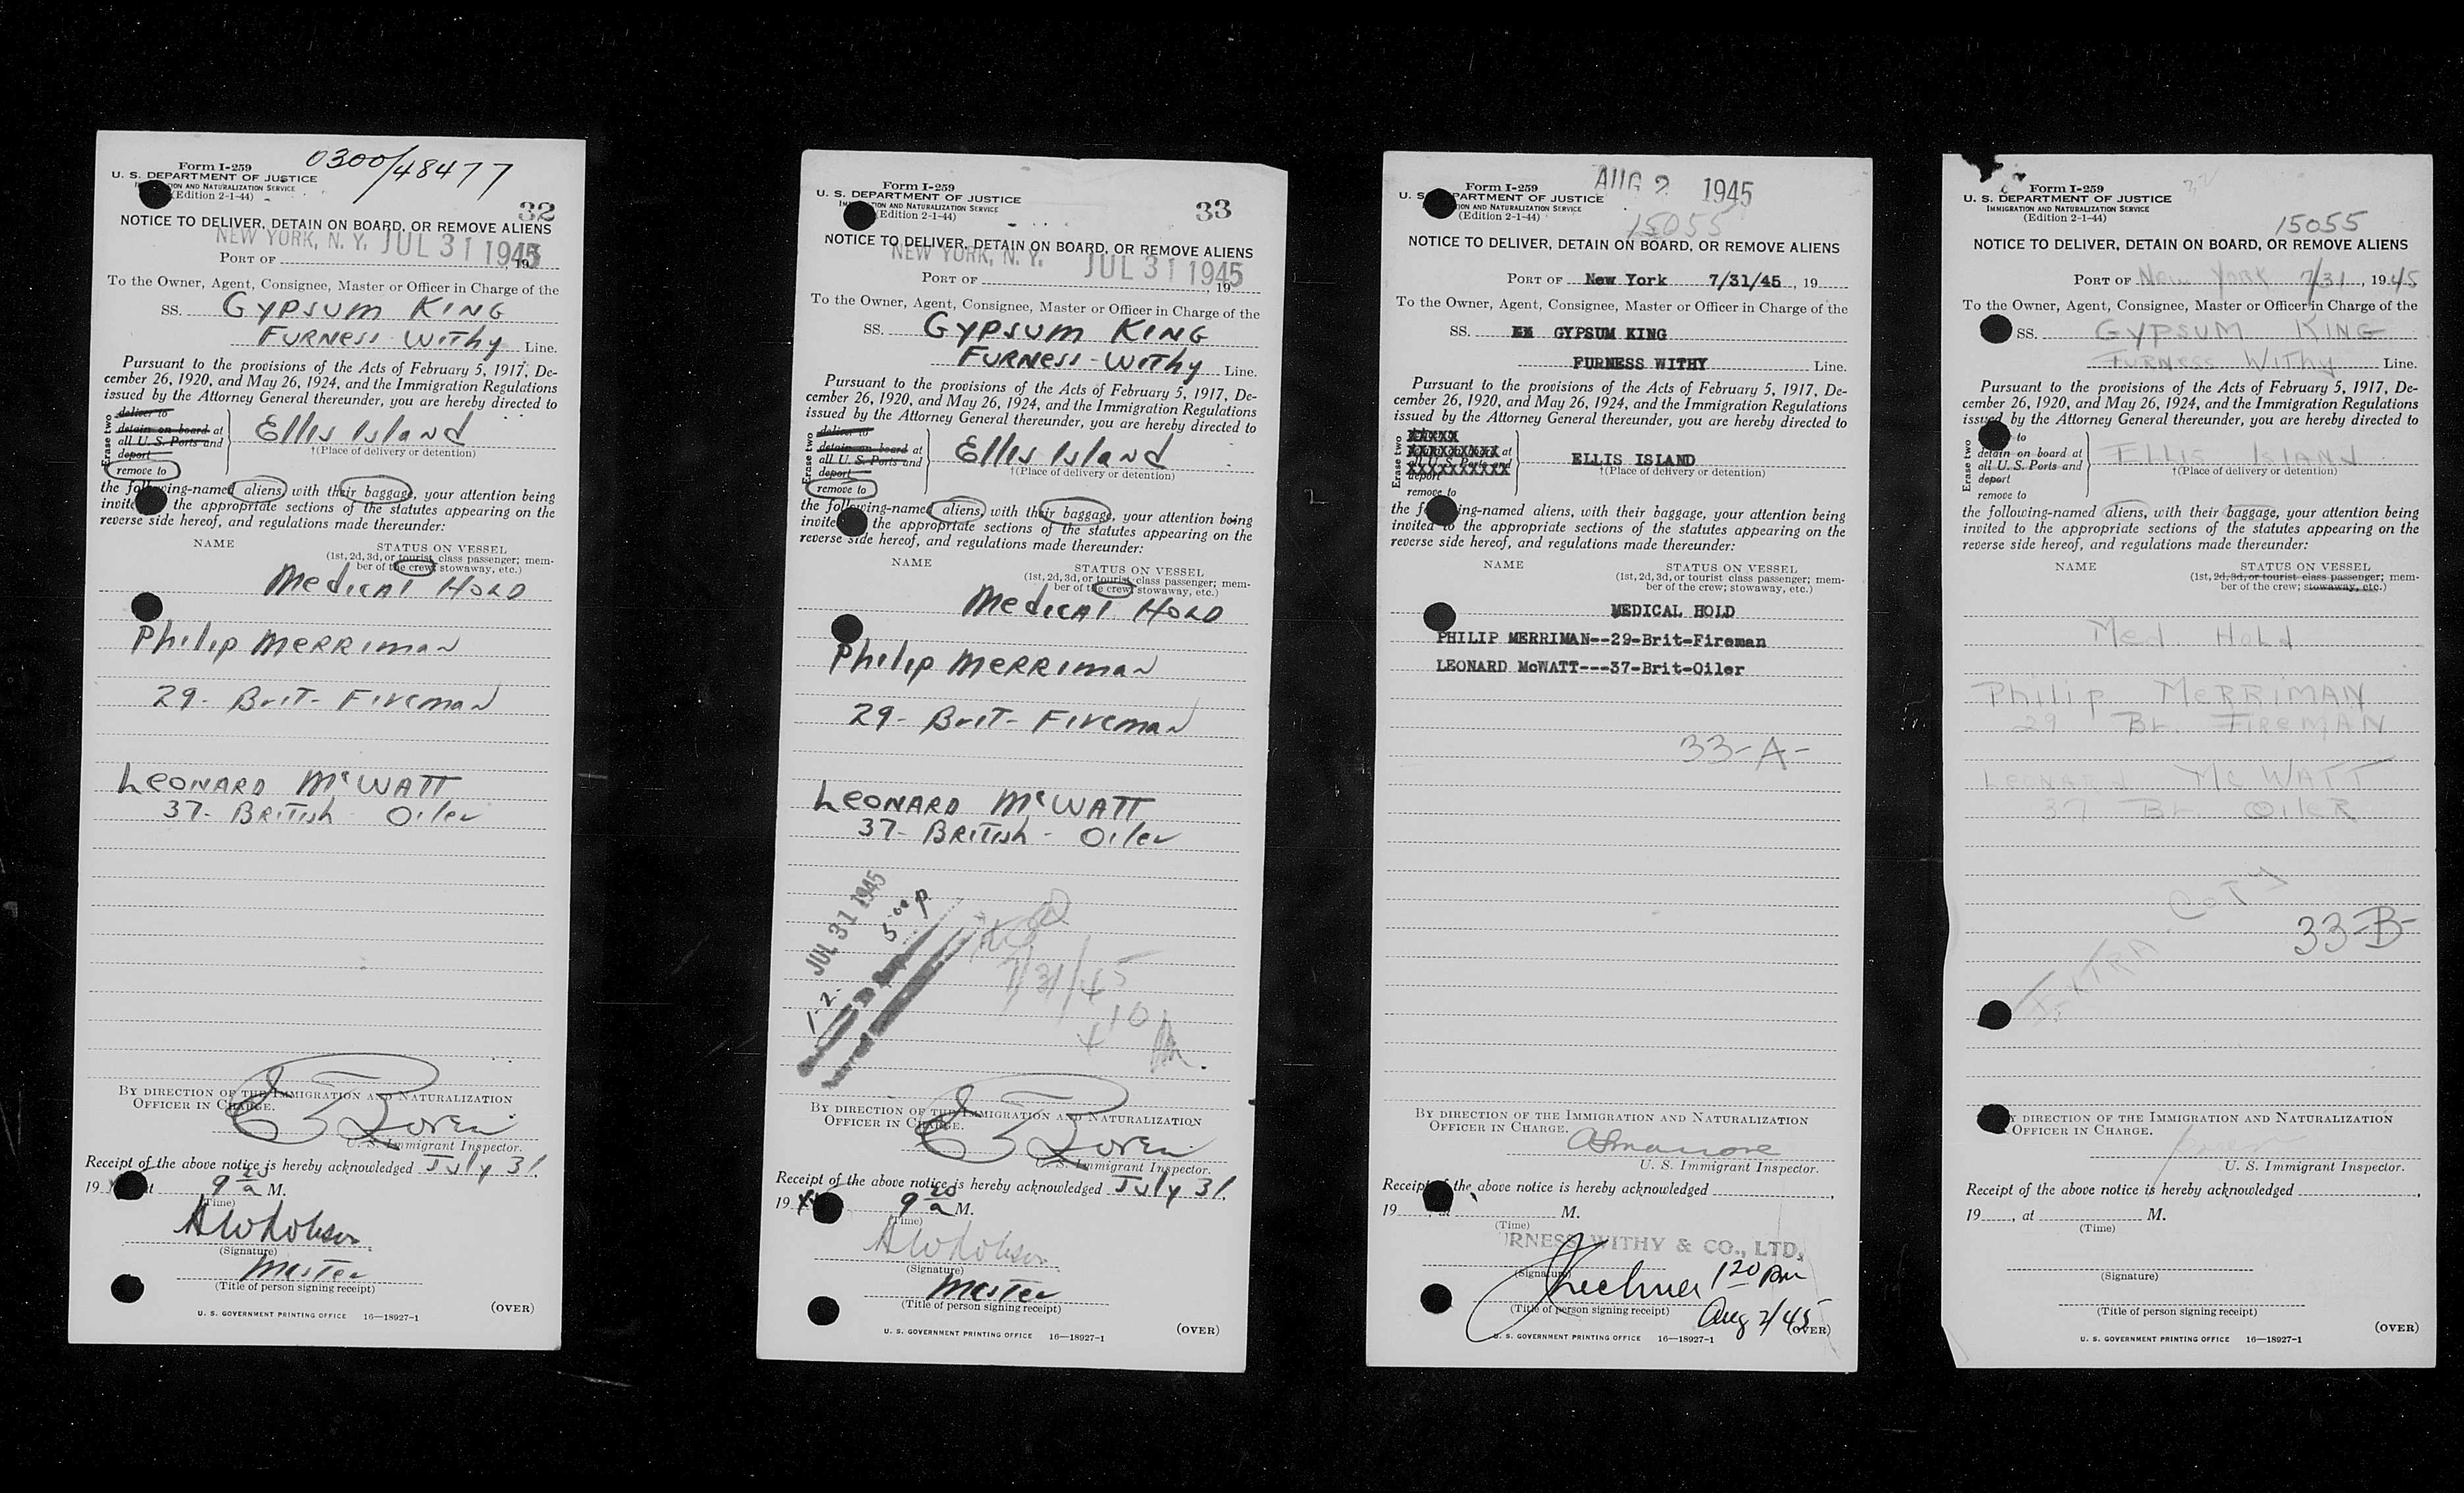 Form I-259
0300/48477
U. S. DEPARTMENT OF JUSTICE
ION AND NATURALIZATION SERVICE
(Edition 2-1-44)
32
NOTICE TO DELIVER, DETAIN ON BOARD, OR REMOVE ALIENS
NEW YORK, N. Y. JUL 31 1945
PORT OF , 19
To the Owner, Agent, Consignee, Master or Officer in Charge of the
SS. GYPSUM KING
FURNESS-WITHY Line.
Pursuant to the provisions of the Acts of February 5, 1917, De-
cember 26, 1920, and May 26, 1924, and the Immigration Regulations
issued by the Attorney General thereunder, you are hereby directed to
Erase two
deliver to
detain on board at
all U. S. Ports and
deport
remove to
Ellis Island
†(Place of delivery or detention)
the following-named aliens, with their baggage, your attention being
invited the appropriate sections of the statutes appearing on the
reverse side hereof, and regulations made thereunder:
NAME STATUS ON VESSEL
(1st, 2d, 3d, or tourist class passenger; mem-
ber of the crew; stowaway, etc.)
Medical Hold
Philip Merriman
29- Brit- Fireman
LEONARD McWATT
37- British - Oiler
BY DIRECTION OF THE IMMIGRATION AND NATURALIZATION
OFFICER IN CHARGE.
U. S. Immigrant Inspector.
Receipt of the above notice is hereby acknowledged July 31,
19 at 9 20 a M.
(Time)
(Signature)
Master
(Title of person signing receipt)
U. S. GOVERNMENT PRINTING OFFICE 16—18927-1
(OVER)
Form I-259
U. S. DEPARTMENT OF JUSTICE
IMMIGRATION AND NATURALIZATION SERVICE
(Edition 2-1-44)
33
NOTICE TO DELIVER, DETAIN ON BOARD, OR REMOVE ALIENS
NEW YORK, N. Y. JUL 31 1945
PORT OF , 19
To the Owner, Agent, Consignee, Master or Officer in Charge of the
SS. GYPSUM KING
FURNESS-WITHY Line.
Pursuant to the provisions of the Acts of February 5, 1917, De-
cember 26, 1920, and May 26, 1924, and the Immigration Regulations
issued by the Attorney General thereunder, you are hereby directed to
Erase two
deliver to
detain on board at
all U. S. Ports and
deport
remove to
Ellis Island
†(Place of delivery or detention)
the following-named aliens, with their baggage, your attention being
invited the appropriate sections of the statutes appearing on the
reverse side hereof, and regulations made thereunder:
NAME STATUS ON VESSEL
(1st, 2d, 3d, or tourist class passenger; mem-
ber of the crew; stowaway, etc.)
Medical Hold
Philip Merriman
29- Brit- Fireman
LEONARD McWATT
37- British - Oiler
JUL 31 1945
5 00 p.
7/31/45
BY DIRECTION OF THE IMMIGRATION AND NATURALIZATION
OFFICER IN CHARGE.
U. S. Immigrant Inspector.
Receipt of the above notice is hereby acknowledged July 31,
19 9 20 a M.
(Time)
(Signature)
Master
(Title of person signing receipt)
U. S. GOVERNMENT PRINTING OFFICE 16—18927-1
(OVER)
AUG 2 1945
Form I-259
U. S. DEPARTMENT OF JUSTICE
IMMIGRATION AND NATURALIZATION SERVICE
(Edition 2-1-44)
15055
NOTICE TO DELIVER, DETAIN ON BOARD, OR REMOVE ALIENS
PORT OF New York 7/31/45 , 19
To the Owner, Agent, Consignee, Master or Officer in Charge of the
SS. GYPSUM KING
FURNESS WITHY Line.
Pursuant to the provisions of the Acts of February 5, 1917, De-
cember 26, 1920, and May 26, 1924, and the Immigration Regulations
issued by the Attorney General thereunder, you are hereby directed to
Erase two
XXXXX
XXXXXXXXX at
all U. S. Ports and
XXXXXXXXXX
deport
remove to
ELLIS ISLAND
†(Place of delivery or detention)
the following-named aliens, with their baggage, your attention being
invited to the appropriate sections of the statutes appearing on the
reverse side hereof, and regulations made thereunder:
NAME STATUS ON VESSEL
(1st, 2d, 3d, or tourist class passenger; mem-
ber of the crew; stowaway, etc.)
MEDICAL HOLD
PHILIP MERRIMAN--29-Brit-Fireman
LEONARD McWATT---37-Brit-Oiler
33-A-
BY DIRECTION OF THE IMMIGRATION AND NATURALIZATION
OFFICER IN CHARGE.
U. S. Immigrant Inspector.
Receipt of the above notice is hereby acknowledged ,
19 , at M.
(Time)
URNESS, WITHY & CO., LTD.
(Signature)
1 20 pm
(Title of person signing receipt)
Aug 2/45
U. S. GOVERNMENT PRINTING OFFICE 16—18927-1
(OVER)
Form I-259
U. S. DEPARTMENT OF JUSTICE
IMMIGRATION AND NATURALIZATION SERVICE
(Edition 2-1-44)
15055
NOTICE TO DELIVER, DETAIN ON BOARD, OR REMOVE ALIENS
PORT OF New York 7/31, 1945
To the Owner, Agent, Consignee, Master or Officer in Charge of the
SS. GYPSUM KING
FURNESS WITHY Line.
Pursuant to the provisions of the Acts of February 5, 1917, De-
cember 26, 1920, and May 26, 1924, and the Immigration Regulations
issued by the Attorney General thereunder, you are hereby directed to
Erase two
to
detain on board at
all U. S. Ports and
deport
remove to
ELLIS ISLAND
†(Place of delivery or detention)
the following-named aliens, with their baggage, your attention being
invited to the appropriate sections of the statutes appearing on the
reverse side hereof, and regulations made thereunder:
NAME STATUS ON VESSEL
(1st, 2d, 3d, or tourist class passenger; mem-
ber of the crew; stowaway, etc.)
Med. Hold
Philip MERRIMAN
29 Br. FIREMAN
LEONARD McWATT
37 Br. OILER
EXTRA COPY
33-B-
BY DIRECTION OF THE IMMIGRATION AND NATURALIZATION
OFFICER IN CHARGE.
U. S. Immigrant Inspector.
Receipt of the above notice is hereby acknowledged ,
19 , at M.
(Time)
(Signature)
(Title of person signing receipt)
U. S. GOVERNMENT PRINTING OFFICE 16—18927-1
(OVER)